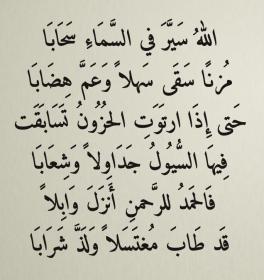 اللهُ سَيَّرَ في السَّمَاءِ سَحَابَا
مُزنًا سَقَى سَهلاً وَعَمَّ هِضَابَا
حَتى إِذَا ارتَوَتِ الحُزُونُ تَسَابَقَت
فِيهَا السُّيُولُ جَدَاوِلاً وَشِعَابَا
فَالحَمدُ للرَّحمنِ أَنزَلَ وَابِلاً
قَد طَابَ مُغتَسَلاً وَلَذَّ شَرَابَا